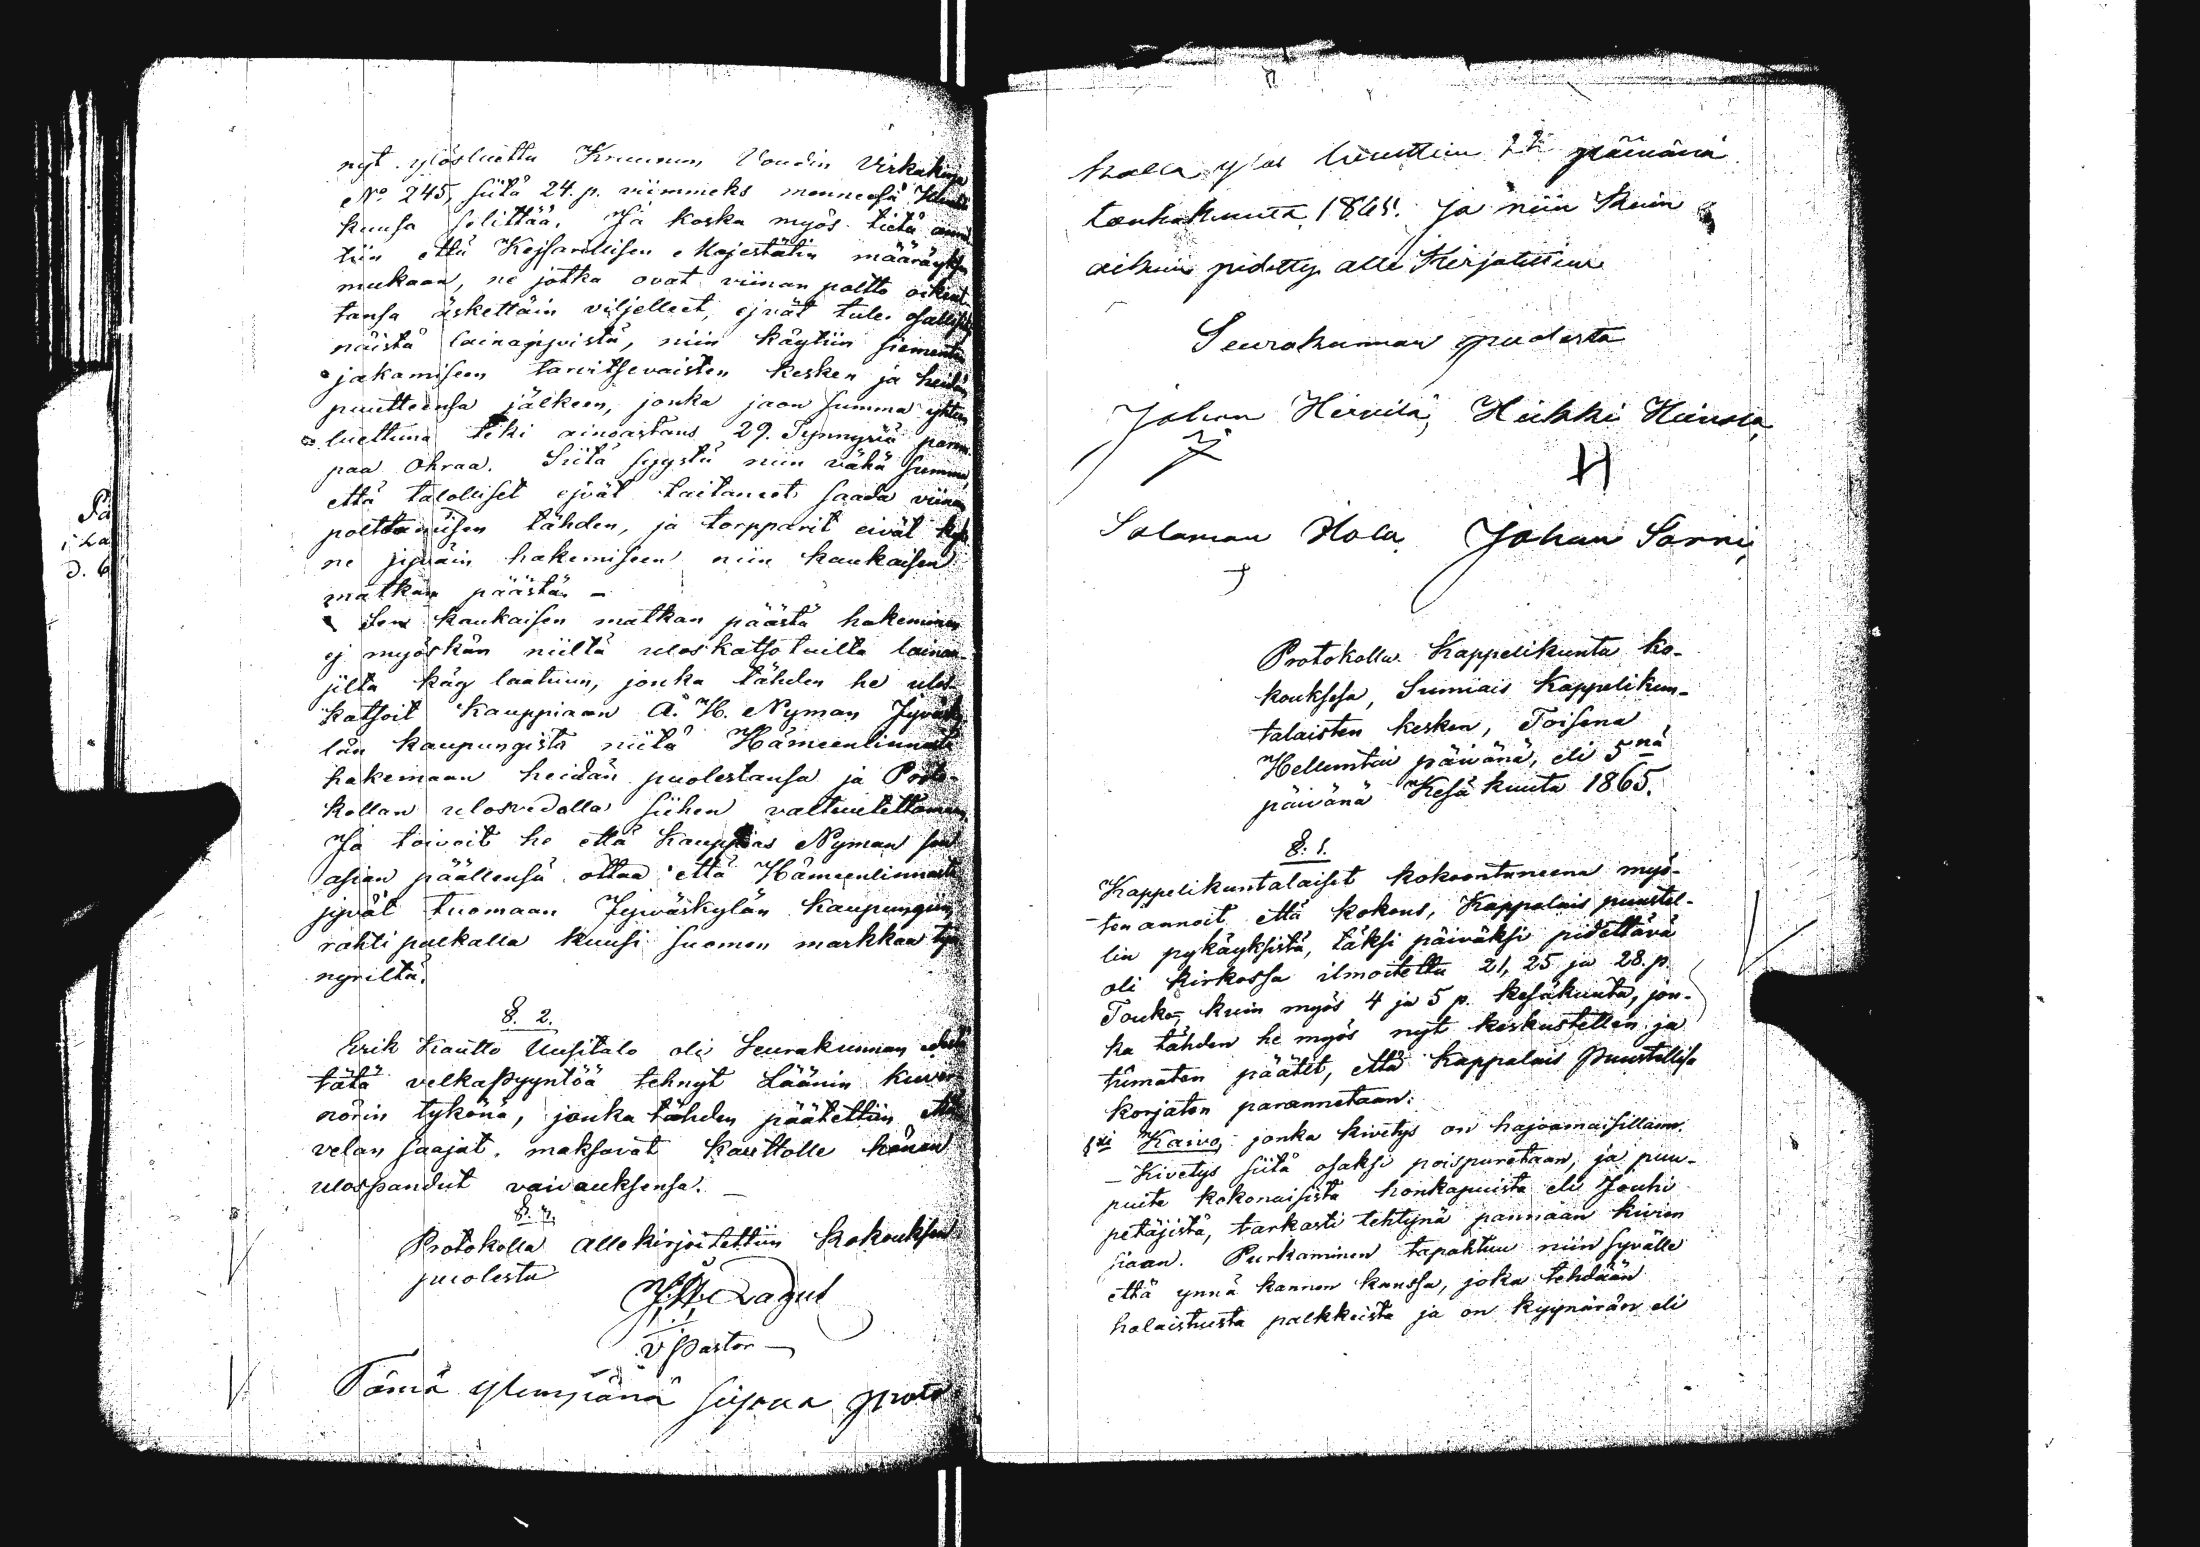 nyt ylösluettu Kruunun Voudin Virkakirja
No 245, siitä 24. p. viimmeks menneesä
kuusa selittää. Ja koska myös tietä annet-
tiin että Keisarillisen Majestätin määräyksen
mukaan, ne jotka ovat viinan poltto oikeut-
tansa äskettäin viljelleet, ejvät tule osallisiksi
näistä lainajyvistä, niin käytiin siementen
jakamiseen tarvitsevaisten kesken ja heidän
puutteensa jälkeen, jonka jaon summa yhteen
luettuna teki ainoastans 29. Tynnyriä parem-
paa Ohraa. Siitä syystä niin vähä summa,
että talolliset ejvät taitaneet saada viinan
polttamisen tähden, ja torpparit eivät
ne jyväin hakemiseen niin kaukaisen
matkan päästä. –
Sen kaukaisen matkan päästä hakeminen
ej myöskän niiltä uloskatsotuilta lainaa-
jilta käy laatuun, jonka tähden he ulos-
katsoit Kauppiaan A. H. Nyman Jyväsky-
län kaupungista niitä Hämeenlinnasta
hakemaan heidän puolestansa ja Proto-
kollan ulosvedolla siihen valtuutettaman.
Ja toivoit he että Kauppias Nyman sen
asian päällensä ottaa että Hämeenlinnasta
jyvät tuomaan Jyväskylän kaupungiin
rahti palkalla kuusi suomen markkaa tyn-
nyriltä.
§. 2.
Erik Kautto Uusitalo oli Seurakunnan
tätä velkapyyntöä tehnyt Läänin kuver-
nörin tykönä, jonka tähden päätettiin että
velan saajat maksavat Kauttolle hänen
ulospandut vaivauksensa. –
Protokolla allekirjoitettiin kokouksen
puolesta
Lagus
v pastor –
Tämä ylempänä seisova proto-
kolla ylös luettiin 22 päivänä
toukokuuta 1865. Ja niin kuin
oikein pidetty alle kirjotettiin
Seurakunnan puolesta
Johan Hirvilä, Heikki
H
Salomon Johan Sorri,
Protokolla Kappelikunta ko-
kouksesa, Sumiais Kappelikun-
talaisten kesken, Toisena
Helluntin päivänä, eli 5nä
päivänä Kesä kuuta 1865.
§. 1.
Kappelikuntalaiset kokoontuneena myö-
ten annoit että kokous, Kappalais puustel-
lin pykäyksistä, täksi päiväksi pidettävä
oli kirkossa ilmoitettu 21, 25 ja 28. p.
Touko, kuin myös 4 ja 5 p. kesäkuuta, jon-
ka tähden he myös nyt keskustellen ja
tuumaten päätit, että Kappalais Puustellisa
korjaten parannetaan:
1xi Kaivo, jonka kivetys on hajoamaisillans.
– Kivetys siitä osaksi poispuretaan, ja puu-
puita kokonaisista honkapuista eli Jouhi
petäjistä, tarkasti tehtynä pannaan kiven
siaan. Purkaminen tapahtuu niin syvälle
että ynnä kannen kanssa, joka tehdään
halaistuista palkkeista ja on kyynärän eli